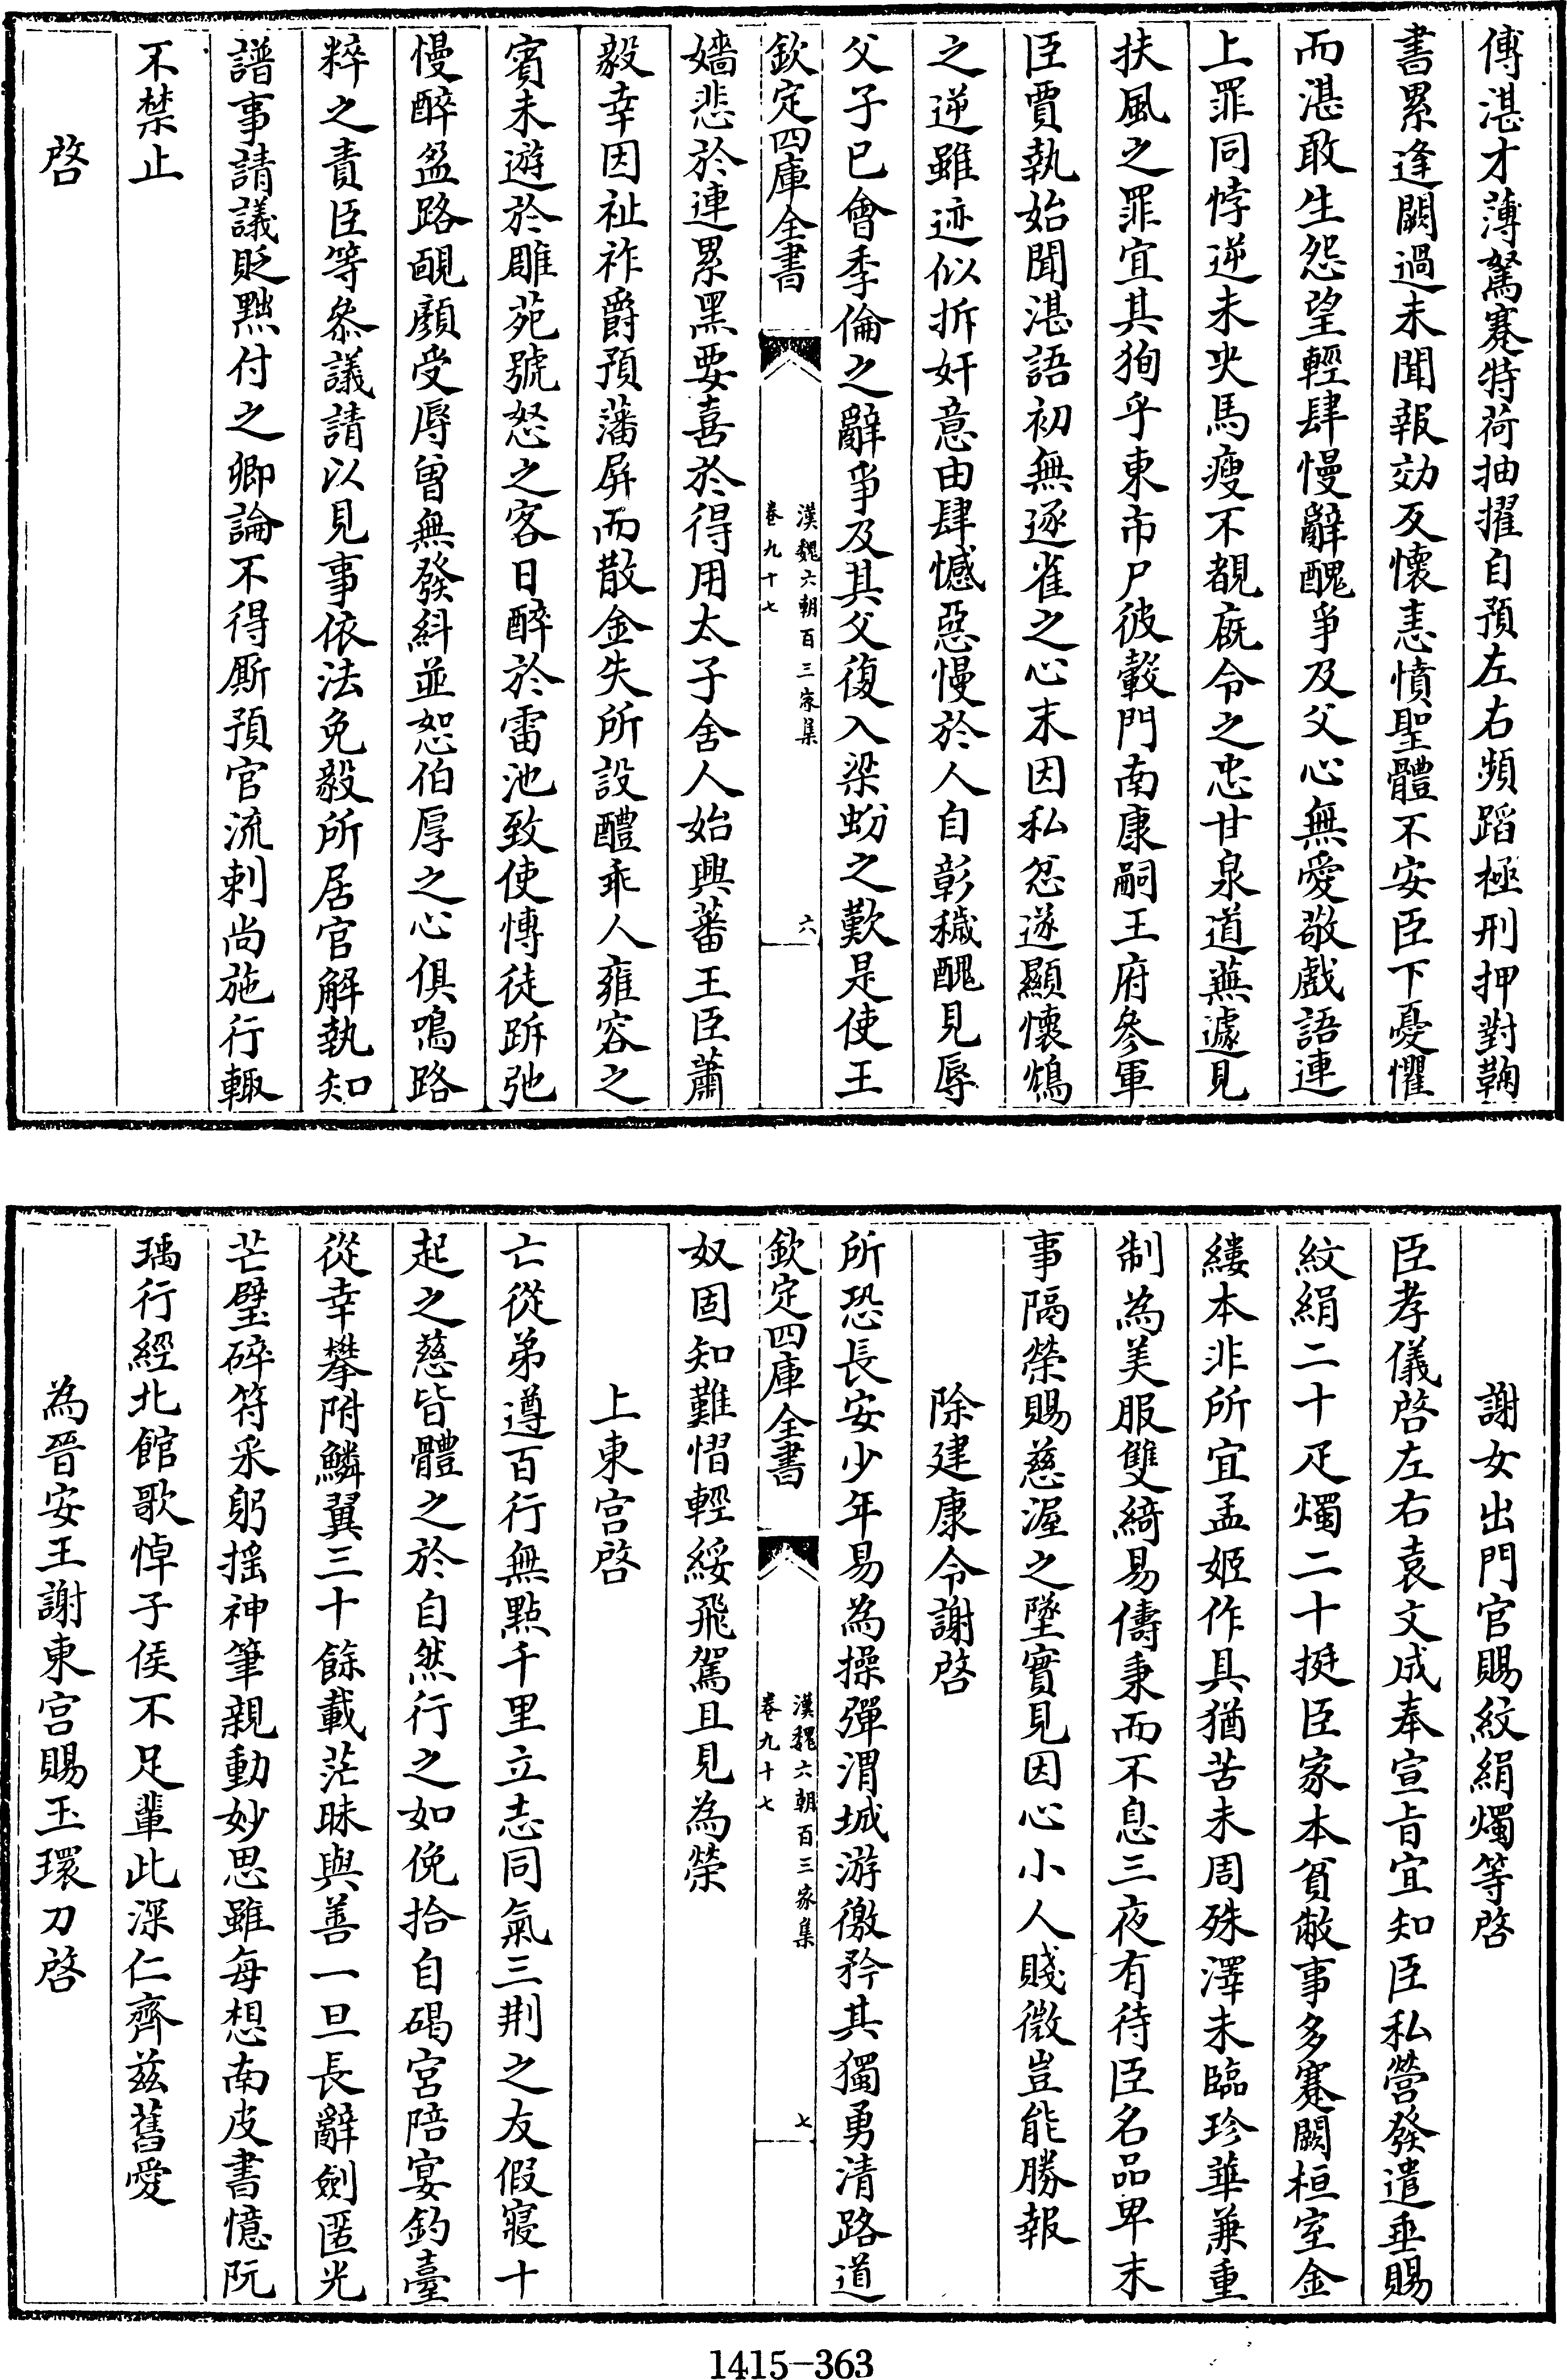 傅湛才薄駑蹇特荷抽擢自預左右頻蹈極刑押對鞠
書累逢闕過未聞報効反懷恚憤聖體不安臣下憂懼
而湛敢生怨望輕肆慢辭醜爭及父心無愛敬戲語連
上罪同悖逆未央馬瘦不覩廐令之忠甘泉道蕪遽見
扶風之罪宜其狥乎東市尸彼轂門南康嗣王府參軍
臣賈執始聞湛語初無逐雀之心末因私忿遂顯懷鴆
之逆雖迹似拆奸意由肆憾惡慢於人自彰穢醜見辱
父子已會季倫之辭爭及其父復入梁蚡之歎是使王
欽定四庫全書
漢魏六朝百三家集
卷九十七
六
嬙悲於連累黑要喜於得用太子舍人始興蕃王臣蕭
毅幸因祉祚爵預藩屏而散金失所設醴乖人雍容之
賓未遊於雕苑號怒之客日醉於雷池致使慱徒跅弛
慢醉盈路靦顏受辱曾無發糾並恕伯厚之心俱鳴路
粹之責臣等叅議請以見事依法免毅所居官解執知
譜事請議貶黜付之卿論不得厮預官流刺尚施行輙
不禁止
啓
謝女出門官賜紋絹燭等啓
臣孝儀啓左右袁文成奉宣㫖宜知臣私營發遣垂賜
紋絹二十疋燭二十挺臣家本貧敝事多蹇闕桓室金
縷本非所宜孟姬作具猶苦未周殊澤未臨珍華兼重
制為美服雙綺易儔秉而不息三夜有待臣名品卑末
事隔榮賜慈渥之墜實見因心小人賤微豈能勝報
除建康令謝啓
所恐長安少年易為操彈渭城游徼矜其獨勇清路道
欽定四庫全書
漢魏六朝百三家集
卷九十七
七
奴固知難慴輕綏飛駕且見為榮
上東宮啓
亡從弟遵百行無點千里立志同氣三荆之友假寢十
起之慈皆體之於自然行之如俛拾自碣宮陪宴釣臺
從幸攀附鱗翼三十餘載茫昧與善一旦長辭劍匿光
芒璧碎符采躬搖神筆親動妙思雖每想南皮書憶阮
瑀行經北館歌悼子侯不足輩此深仁齊兹舊愛
為晉安王謝東宮賜玉環刀啓
1415-363